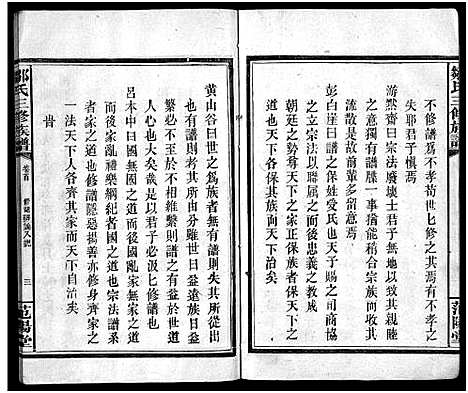 鄒氏三修族譜
范陽堂
不修譜爲不孝苟世七修之其焉有不孝之
失耶君子愼焉
游黙齋曰宗法廢壊士君子無地以致其親睦
之意獨有譜牒一事猶能稍合宗族而使不
流散是故前輩多留意焉
彭白崖曰譜也保姓受氏也天子之司商協
之立宗法以聯属之而後忠義之教成
朝廷之勢安忠義立而後正之家保族矣
天下也士各保其族而天下治矣
黄山谷曰世之爲族者無有譜則失其所從出
也有譜則考其所由分雖世日益遠族日益
繁必不至於不相維繫則譜之有益於世道
人心也大矣哉是以君子必汲七修譜也
呂本中曰國無國之道而後國亂家無家之道
而後家亂禮樂綱紀者國之道也宗法譜系
者家之道也修譜隱惡揚善亦修身齊家之
一法天下人各齊其家天下共治矣
鄒氏三修族譜
卷首
三
范陽堂